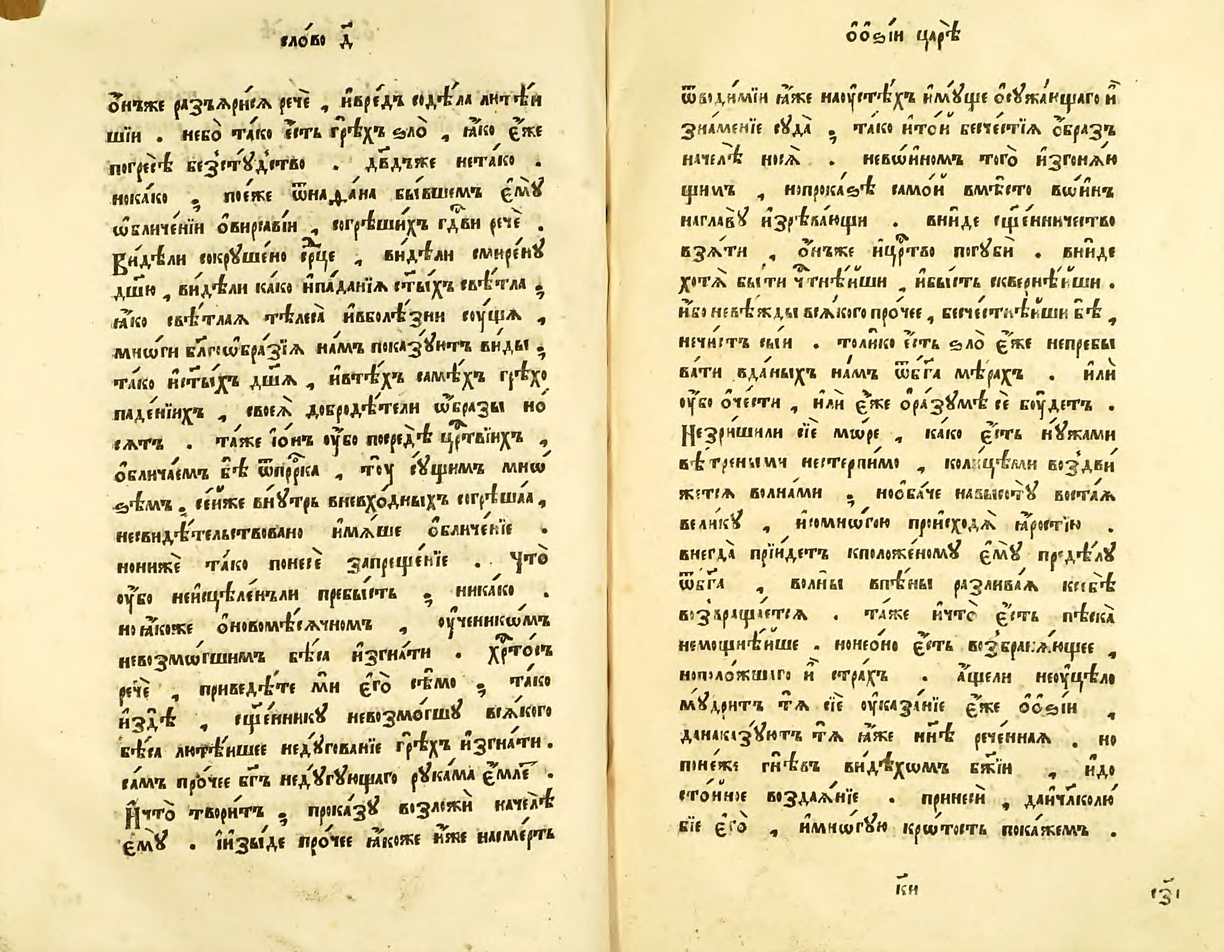 сло́во д҃
о҆́нъже разъѧри́сѧ речѐ , и҆вре́дъ содѣ́ла лютѣ́и
шїи . небо̀ та́ко є҆́сть грѣ́хъ ѕло̀ , ꙗ҆́ко є҆́же
погресѣ̀ безсту́дство . дв҃дъже нета́ко .
нока́ко ; поне́же ѿнаѳа́на бы́вшемъ є҆мꙋ̀
ѡ҆бличе́нїи ѻ҆вирсаві́и , согрѣши́хъ гд҇ви речѐ .
Ви́дѣли сокрꙋше́но ср҇це , ви́дѣли смире́нꙋ
дш҃ю , ви́дѣли ка́ко и҆па́данїѧ ст҃ы́хъ свѣ́тла ;
ꙗ҆́ко свѣ́тлаѧ тѣлеса̀ и҆вболѣ́зни сꙋ́щѧ ,
мнѡ́ги бл҃гоѡбра́зїѧ на́мъ показꙋ́ютъ ви́ды ;
та́ко и҆ст҃ы́хъ дш҃ѧ , и҆втѣ́хъ самѣ́хъ грѣхо
паде́нїихъ , своеѧ̀ добродѣ́тели ѡ҆́бразы но́
сѧтъ . та́же і҆о́нъ ᲂу҆́бо посредѣ̀ цр҇твїихъ ,
ѻ҆блича́емъ бѣ̀ ѿпрⷪ҇ро́ка , тꙋ̀ сꙋ́щимъ мнѡ́
ѕѣмъ . се́йже внꙋ́трь вневхо́дныхъ согрѣша́ѧ ,
несвидѣ́тельствовано и҆мѧ́ше ѻ҆бличе́нїе .
нонижѐ та́ко понесѐ запреще́нїе . Что̀
ᲂу҆́бо неи҆сцѣле́нъли пребы́сть ; ника́ко .
но ꙗ҆́коже ѻ҆новомѣ́сѧчномъ , ᲂу҆ченикѡ́мъ
невозмо́гшимъ бѣ́са и҆згна́ти . Хр҇то́съ
речѐ , приведѣ́те мѝ є҆го̀ сѣ́мо ; та́ко
и҆здѣ̀ , сщ҃е́нникꙋ невозмо́гшꙋ всѧ́кого
бѣ́са лютѣ́ишее недꙋ́гованїе грѣ́хъ и҆згна́ти .
са́мъ про́чее бг҃ъ недꙋ́гꙋющаго рꙋка́ма є҆́млетъ .
И҆что̀ твори́тъ ; проказꙋ̀ возложѝ начелѣ̀
є҆мꙋ̀ . і҆изы́де про́чее ꙗ҆́коже и҆̀же насме́рть
ѻ҆ѻ҆ѕі́и царѣ̀
ѿводи́мїи ꙗ҆̀же наᲂу҆стѣ́хъ и҆мꙋ́ще ѻ҆сꙋжа́ющаго и҆̀
зна́менїе сꙋда̀ ; та́ко и҆то́й бесче́стїѧ ѻ҆́бразъ
начелѣ̀ носѧ̀ . невѡ́иномъ того̀ и҆згонѧ́ю
щимъ , нопрока́зѣ само́й вмѣ́сто вѡ́инъ
наглавꙋ̀ и҆зрѣва́ющи . вни́де сщ҃е́нничество
взѧ́ти , ѻ҆́нъже и҆цр҇тво погꙋбѝ . вни́де
хотѧ̀ бы́ти чт҇нѣ́йши , и҆бы́сть скве́рнѣ́йши .
и҆́бо невѣ́жды всѧ́кого про́чее , бесче́стнѣ́йши бѣ̀ ,
нечи́стъ сы́и . толи́ко є҆́сть ѕло̀ є҆́же непребы
ва́ти вда́ныхъ на́мъ ѿбг҃а мѣ́рахъ . и҆лѝ
ᲂу҆́бо ѻ҆че́сти , и҆лѝ є҆́же ѻ҆ра́зꙋмѣ сѐ бꙋ́детъ .
Незри́шили сїѐ мо́ре , ка́ко є҆́сть нꙋ́жами
вѣ́треными нестерпи́мо , коли́цѣми воздви́
жетсѧ волна́ми ; нооба́че навысотꙋ̀ воста́ѧ
вели́кꙋ , и҆сомно́гою происходѧ̀ ꙗ҆́ростїю .
внегда̀ прїи́детъ кположе́номꙋ є҆мꙋ̀ предѣ́лꙋ
ѿбг҃а , во́лны впѣ́ны разлива́ѧ ксебѣ̀
возвраща́етсѧ . та́же и҆что̀ є҆́сть пѣска̀
немощнѣ́йше . нонео́но є҆́сть возбранѧ́ющее ,
ноположшаго и҆̀ стра́хъ . а҆́щели неᲂу҆цѣло
мꙋ́дритъ тѧ̀ сїѐ ᲂу҆каза́нїе є҆́же ѻ҆ѻ҆ѕі́и ,
данака́зꙋютъ тѧ̀ ꙗ҆̀же нн҃ѣ рече́ннаѧ . но
поне́же гнѣ́въ ви́дѣхомъ бж҃їи , и҆до
сто́йное воздаѧ́нїе . принесѝ , дайчл҃колю́
бїе є҆го̀ , и҆мно́гꙋю кро́тость пока́жемъ .
к҃и
ѕ҃і